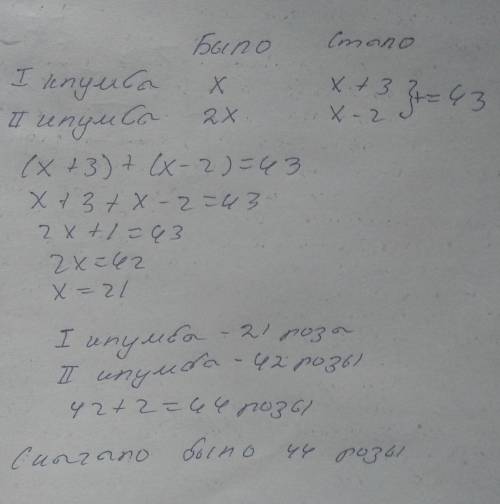 Было Стало
I клумба x x + 3 } + = 43
II клумба 2x x - 2
(x + 3) + (x - 2) = 43
x + 3 + x - 2 = 43
2x + 1 = 43
2x = 42
x = 21
I клумба - 21 роза
II клумба - 42 розы
42 + 2 = 44 розы
Сначало было 44 розы